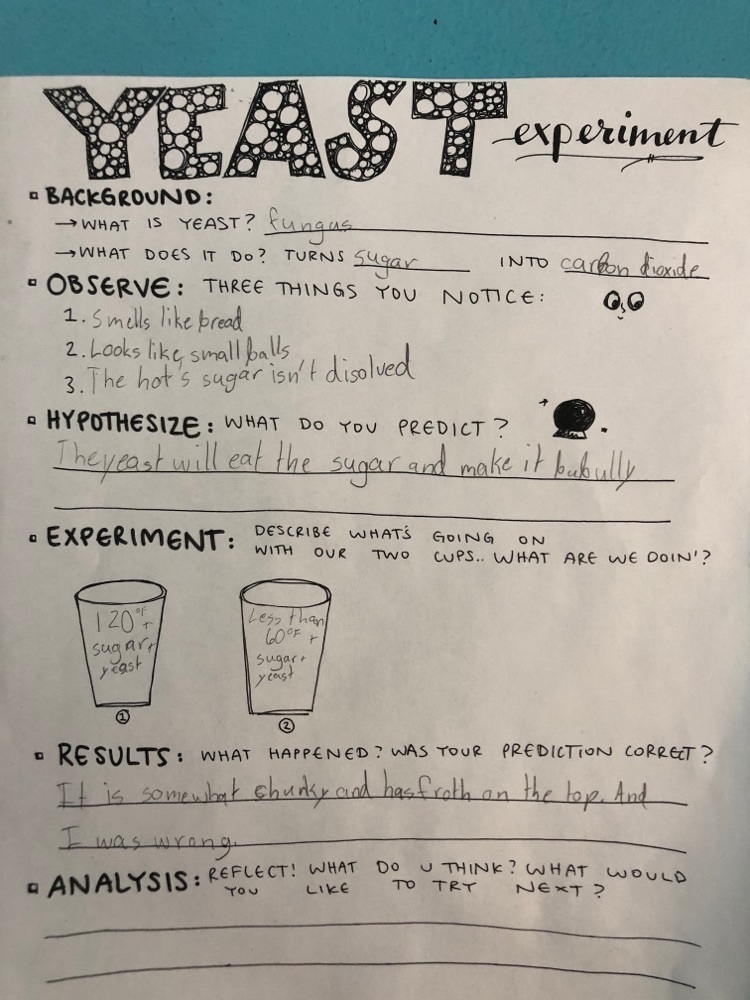 YEAST experiment
BACKGROUND:
→ WHAT IS YEAST? fungus
→ WHAT DOES IT DO? TURNS sugar INTO carbon dioxide
OBSERVE: THREE THINGS YOU NOTICE:
1. Smells like bread
2. Looks like small balls
3. The hot's sugar isn't disolved
HYPOTHESIZE: WHAT DO YOU PREDICT?
The yeast will eat the sugar and make it bubully
EXPERIMENT: DESCRIBE WHAT'S GOING ON
WITH OUR TWO CUPS.. WHAT ARE WE DOIN'?
120°F +
sugar +
yeast
1
Less than
60°F +
sugar +
yeast
2
RESULTS: WHAT HAPPENED? WAS YOUR PREDICTION CORRECT?
It is somewhat chunky and has froth on the top. And
I was wrong.
ANALYSIS: REFLECT! WHAT DO U THINK? WHAT WOULD
YOU LIKE TO TRY NEXT?